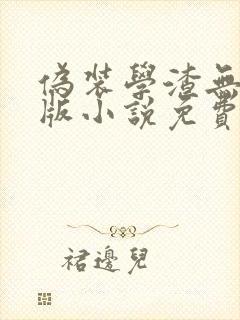 偽裝學渣無
版小說免費
裙邊兒